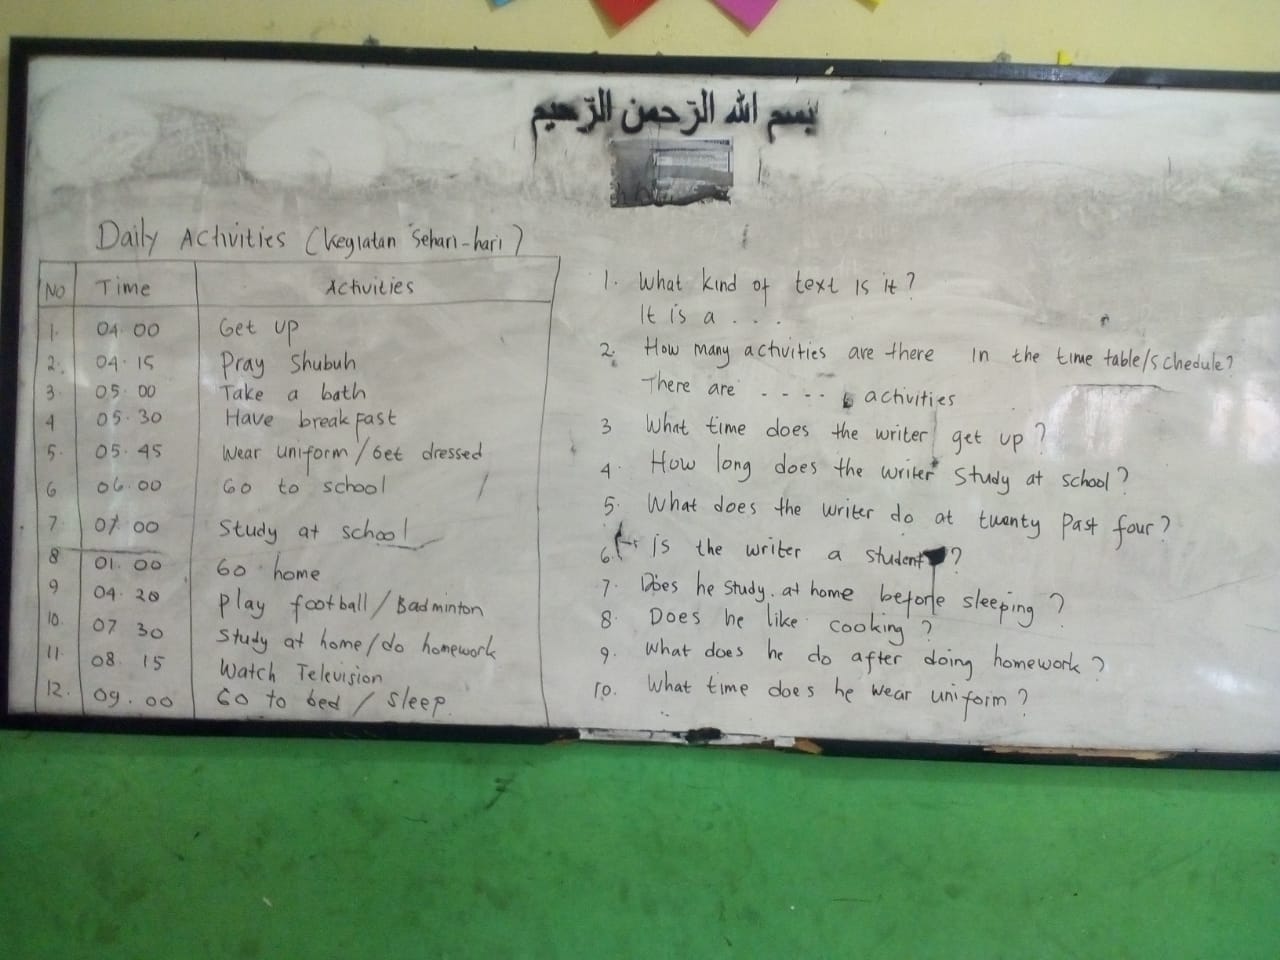 بسم الله الرّحمن الرّحيم
Daily Activities (Kegiatan Sehari-hari)
NO Time Activities
1. 04.00 Get up
2. 04.15 Pray Shubuh
3. 05.00 Take a bath
4 05.30 Have breakfast
5. 05.45 Wear uniform/Get dressed
6 06.00 Go to school
7. 07.00 Study at school
8 01.00 Go home
9 04.20 Play football/Badminton
10. 07 30 Study at home/do homework
11. 08. 15 Watch Television
12. 09.00 Go to bed / sleep.
1. What kind of text is it?
It is a . . .
2. How many activities are there in the time table/schedule?
There are . . . . activities
3 What time does the writer get up?
4. How long does the writer study at school?
5. What does the writer do at twenty past four?
6. Is the writer a student ?
7. Does he study at home before sleeping?
8. Does he like cooking?
9. What does he do after doing homework?
10. What time does he wear uniform?